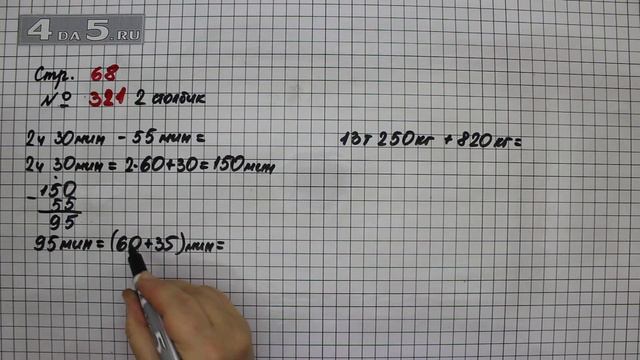 4 DA 5.RU
Стр. 68
№ 321 2 столбик
2ч 30мин - 55мин =
2ч 30мин = 2·60+30=150мин
-150
55
95
95мин = (60+35)мин=
13т 250кг + 820кг=